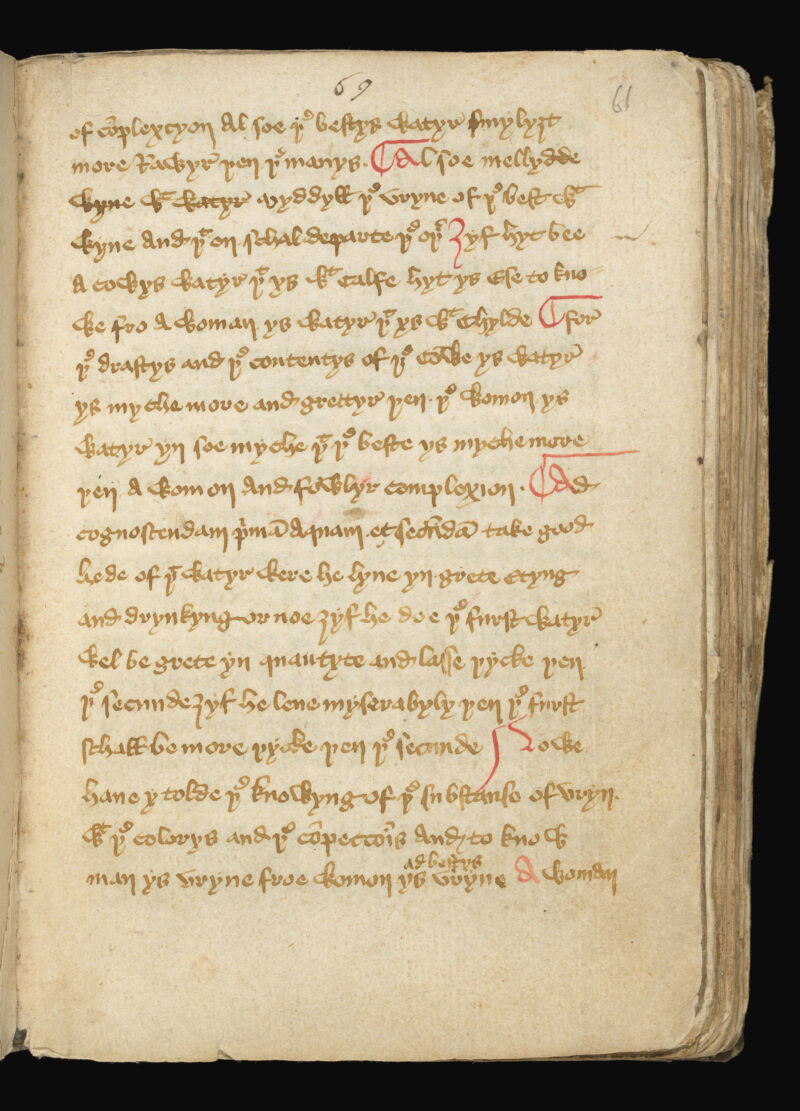 69
61
of cōplexcyon Al soe þe bestys watyr smylyȝt
more Rawyr þen þe manys. Al soe mellydde
wyne wt watyr wyddyll þe vryne of þe best wt
wyne And þt on schal departe þe oþr ȝyf hyt bee
A cowys watyr þt ys wt calfe hyt ys Ese to kno
we fro A woman ys watyr þt ys wt chylde for
þe draftys and þe contentys of þe cowe ys watyr
ys myche more and grettyr þen þe womon ys
watyr yn soe myche þt þe beste ys myche more
þen A womon And fowlyr complexion. Ad
cognoscendam p̄mā Aquam et secūdā take good
hede of þt watyr were he lyue yn grete etyng
and drynkyng or noe ȝyf he doe þe furst watyr
wel be grete yn quantyte and lasse þycke þen
þe secunde ȝyf he leue myserabyly þen þe furst
schall be more þycke þen þe secunde Nowe
haue y tolde þe knowyng of þe substanse of vryn.
wt þe colorys and þe cōpeccoīs And to know
ad bestys
man ys vryne froe womon ys vryne A woman